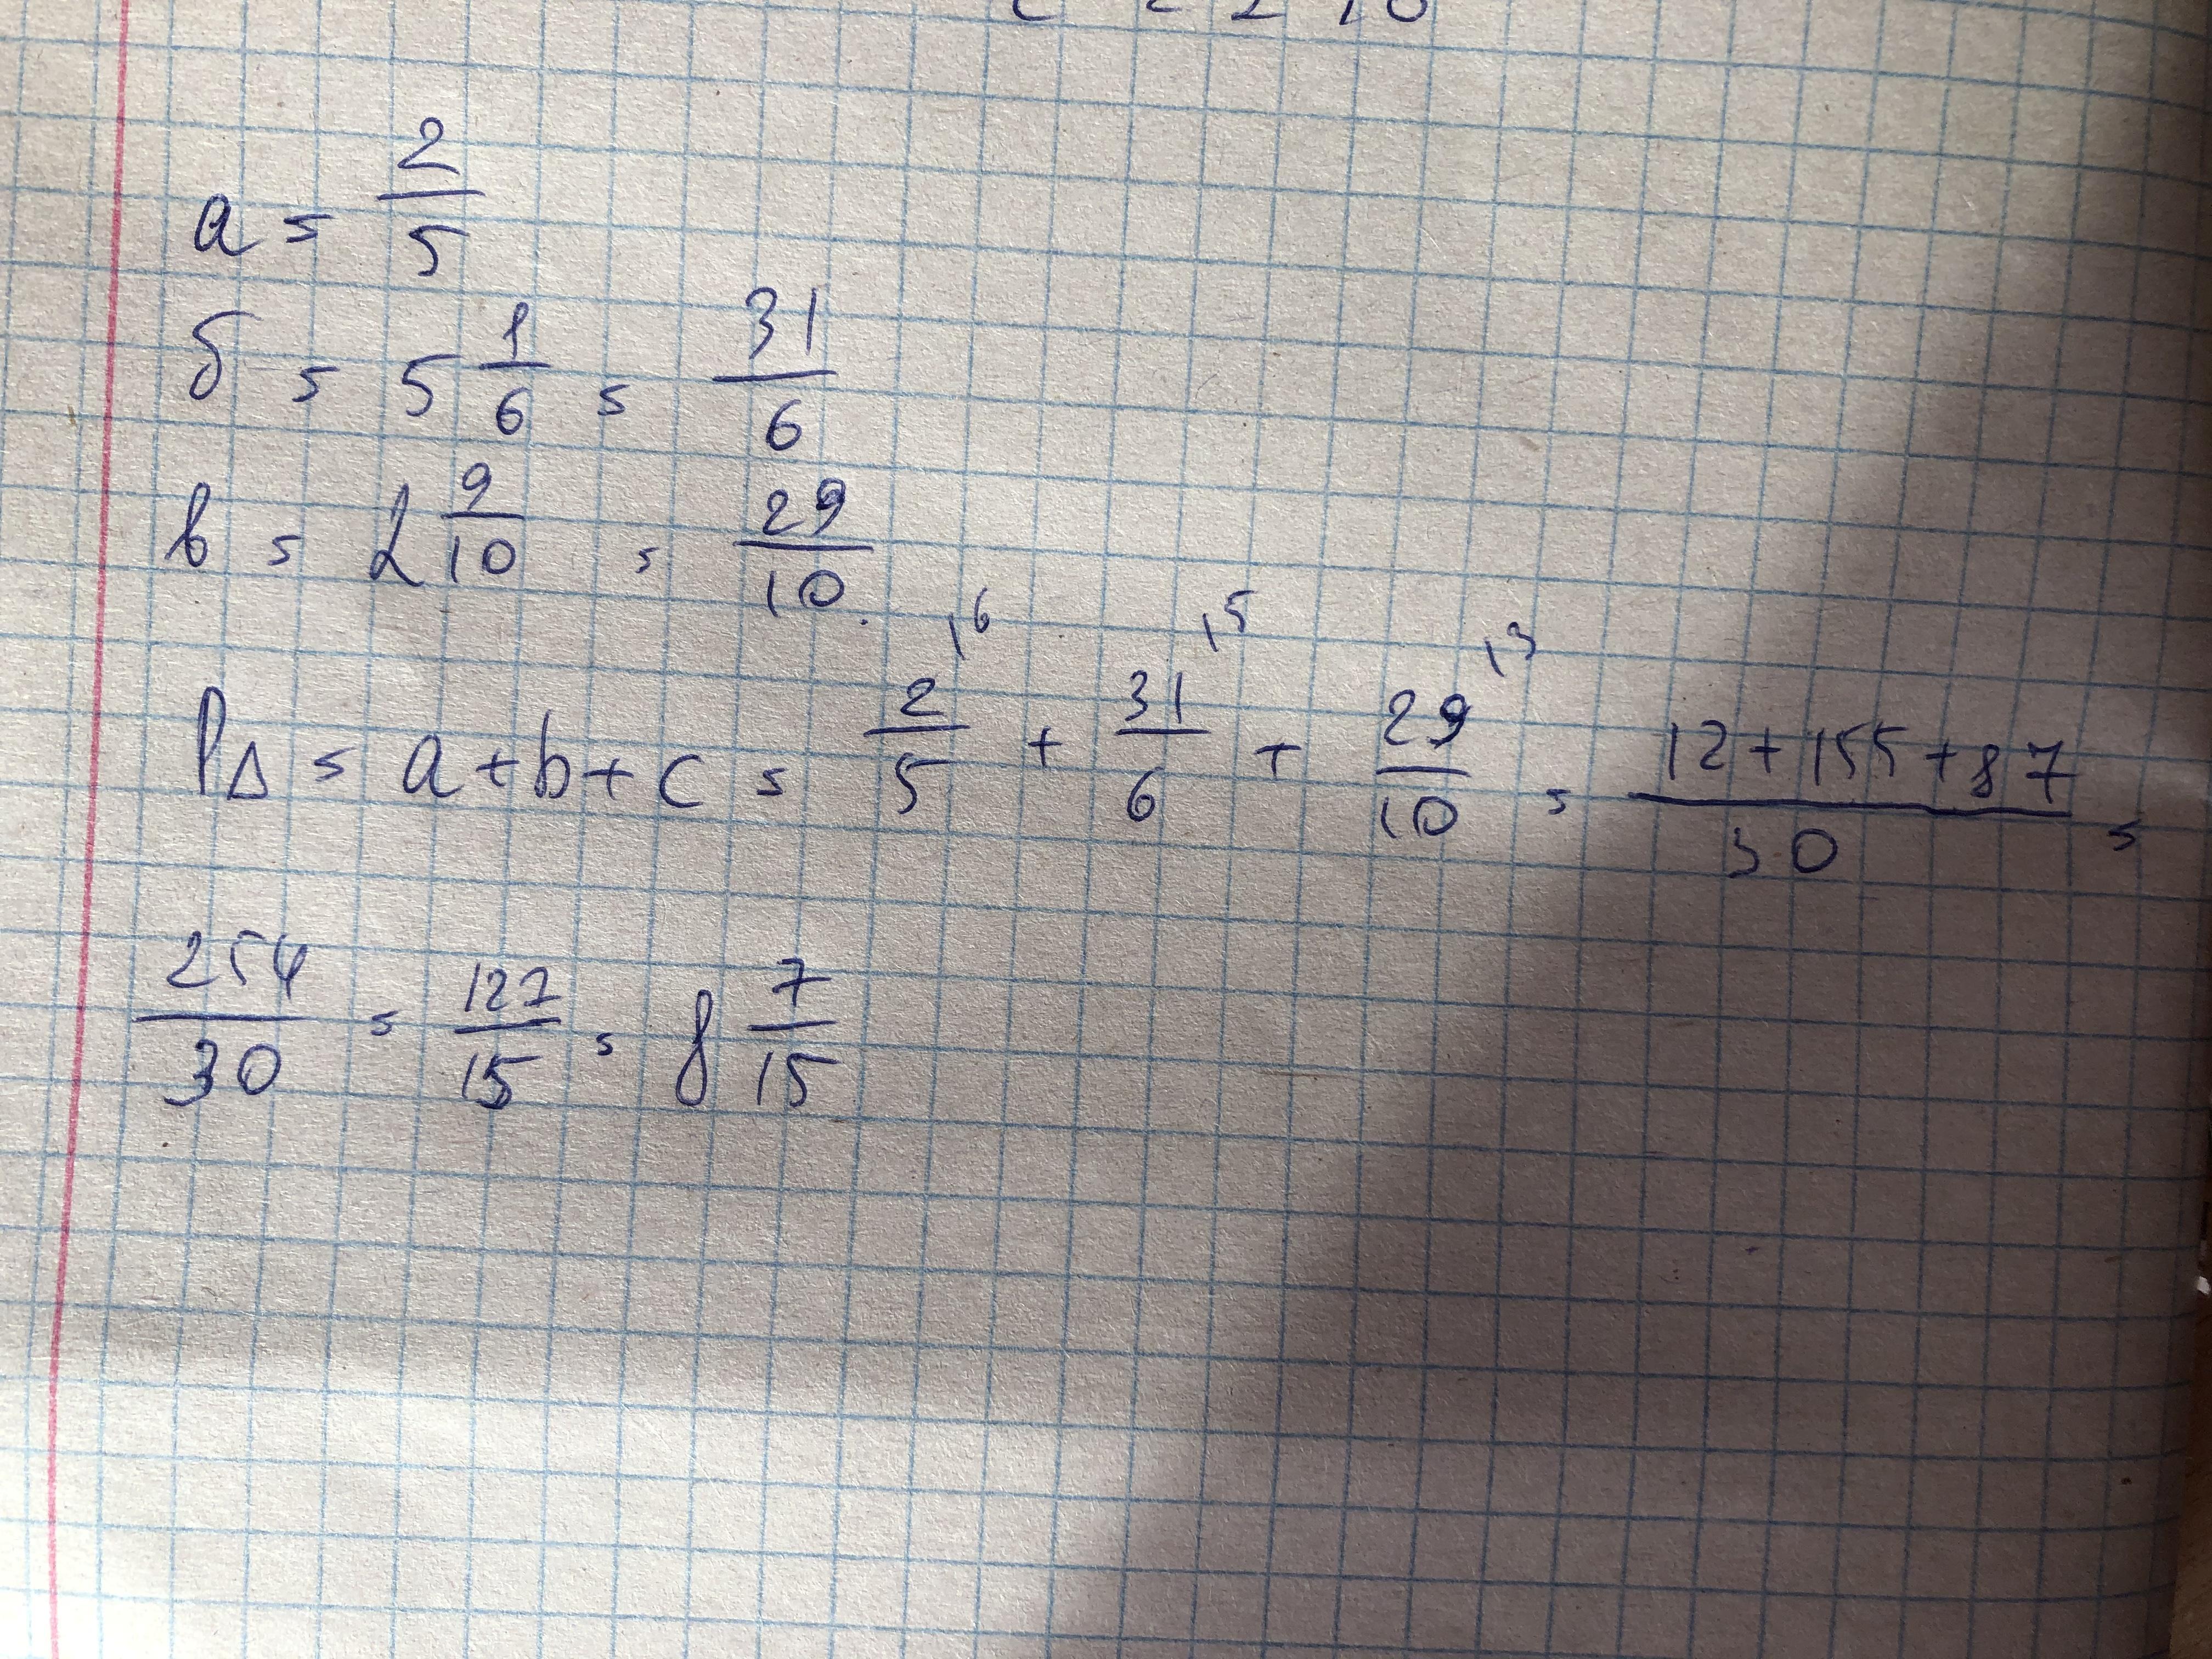 a = 2/5
б = 5 1/6 = 31/6
в = 2 9/10 = 29/10
P∆ = a + b + c = 2/5 \6 + 31/6 \5 + 29/10 \3 = (12 + 155 + 87)/30 =
254/30 = 127/15 = 8 7/15